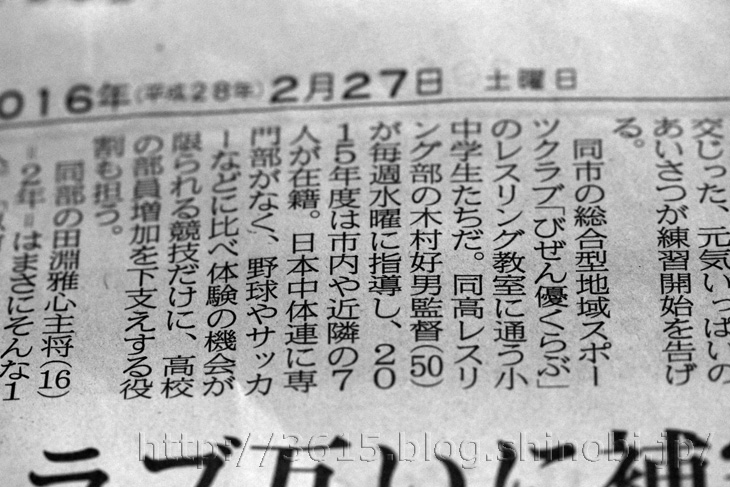 2016年(平成28年)2月27日 土曜日
交じった、元気いっぱいの
あいさつが練習開始を告げ
る。
同市の総合型地域スポー
ツクラブ「びぜん優くらぶ」
のレスリング教室に通う小
中学生たちだ。同高レスリ
ング部の木村好男監督(50)
が毎週水曜に指導し、20
15年度は市内や近隣の7
人が在籍。日本中体連に専
門部がなく、野球やサッカ
ーなどに比べ体験の機会が
限られる競技だけに、高校
の部員増加を下支えする役
割も担う。
同部の田淵雅心主将(16)
=2年=はまさにそんな1
ラブ互いに補
http://3615.blog.shinobi.jp/